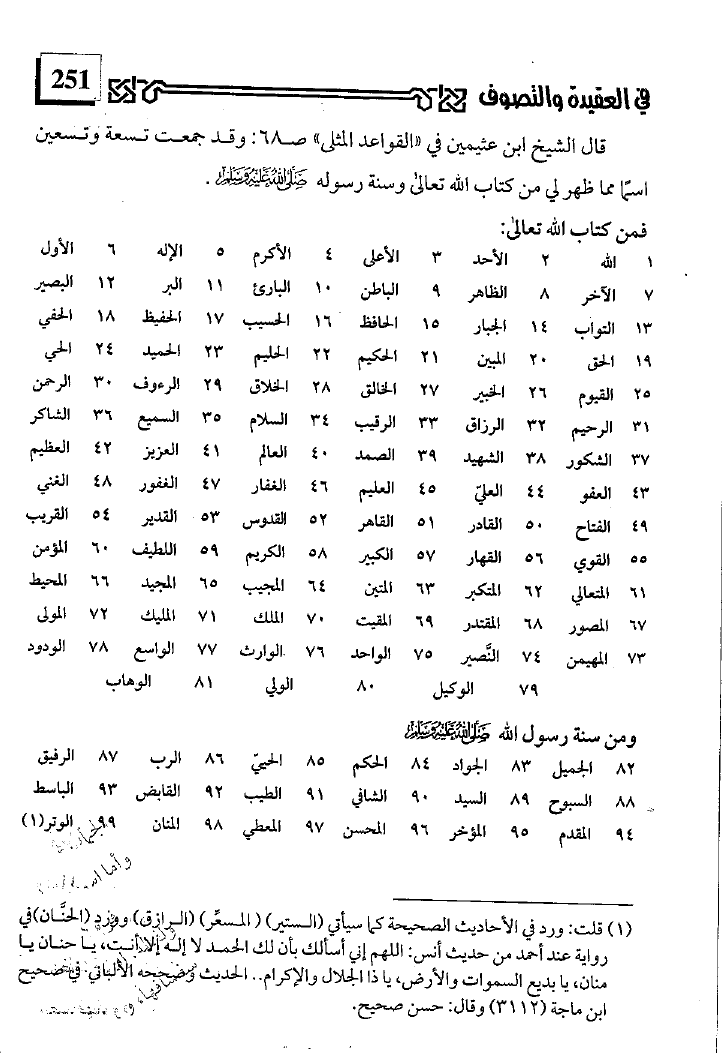 251
في العقيدة والتصوف
قال الشيخ ابن عثيمين في «القواعد المثلى» صـ٦٨: وقد جمعت تسعة وتسعين
اسمًا مما ظهر لي من كتاب الله تعالى وسنة رسوله ﷺ.
فمن كتاب الله تعالى:
١ الله ٢ الأحد ٣ الأعلى ٤ الأكرم ٥ الإله ٦ الأول
٧ الآخر ٨ الظاهر ٩ الباطن ١٠ البارئ ١١ البر ١٢ البصير
١٣ التواب ١٤ الجبار ١٥ الحافظ ١٦ الحسيب ١٧ الحفيظ ١٨ الحفي
١٩ الحق ٢٠ المبين ٢١ الحكيم ٢٢ الحليم ٢٣ الحميد ٢٤ الحي
٢٥ القيوم ٢٦ الخبير ٢٧ الخالق ٢٨ الخلاق ٢٩ الرءوف ٣٠ الرحمن
٣١ الرحيم ٣٢ الرزاق ٣٣ الرقيب ٣٤ السلام ٣٥ السميع ٣٦ الشاكر
٣٧ الشكور ٣٨ الشهيد ٣٩ الصمد ٤٠ العالم ٤١ العزيز ٤٢ العظيم
٤٣ العفو ٤٤ العليّ ٤٥ العليم ٤٦ الغفار ٤٧ الغفور ٤٨ الغني
٤٩ الفتاح ٥٠ القادر ٥١ القاهر ٥٢ القدوس ٥٣ القدير ٥٤ القريب
٥٥ القوي ٥٦ القهار ٥٧ الكبير ٥٨ الكريم ٥٩ اللطيف ٦٠ المؤمن
٦١ المتعالي ٦٢ المتكبر ٦٣ المتين ٦٤ المجيب ٦٥ المجيد ٦٦ المحيط
٦٧ المصور ٦٨ المقتدر ٦٩ المقيت ٧٠ الملك ٧١ المليك ٧٢ المولى
٧٣ المهيمن ٧٤ النَّصير ٧٥ الواحد ٧٦ الوارث ٧٧ الواسع ٧٨ الودود
٧٩ الوكيل ٨٠ الولي ٨١ الوهاب
ومن سنة رسول الله ﷺ
٨٢ الجميل ٨٣ الجواد ٨٤ الحكم ٨٥ الحييّ ٨٦ الرب ٨٧ الرفيق
٨٨ السبوح ٨٩ السيد ٩٠ الشافي ٩١ الطيب ٩٢ القابض ٩٣ الباسط
٩٤ المقدم ٩٥ المؤخر ٩٦ المحسن ٩٧ المعطي ٩٨ المنان ٩٩ الوتر(١)
(١) قلت: ورد في الأحاديث الصحيحة كما سيأتي (الستير) (المسعِّر) (الرازق) وورد (الحنَّان) في
رواية عند أحمد من حديث أنس: اللهم إني أسألك بأن لك الحمد لا إله إلا أنت، يا حنان يا
منان، يا بديع السموات والأرض، يا ذا الجلال والإكرام.. الحديث وصححه الألباني في صحيح
ابن ماجة (٣١١٢) وقال: حسن صحيح.